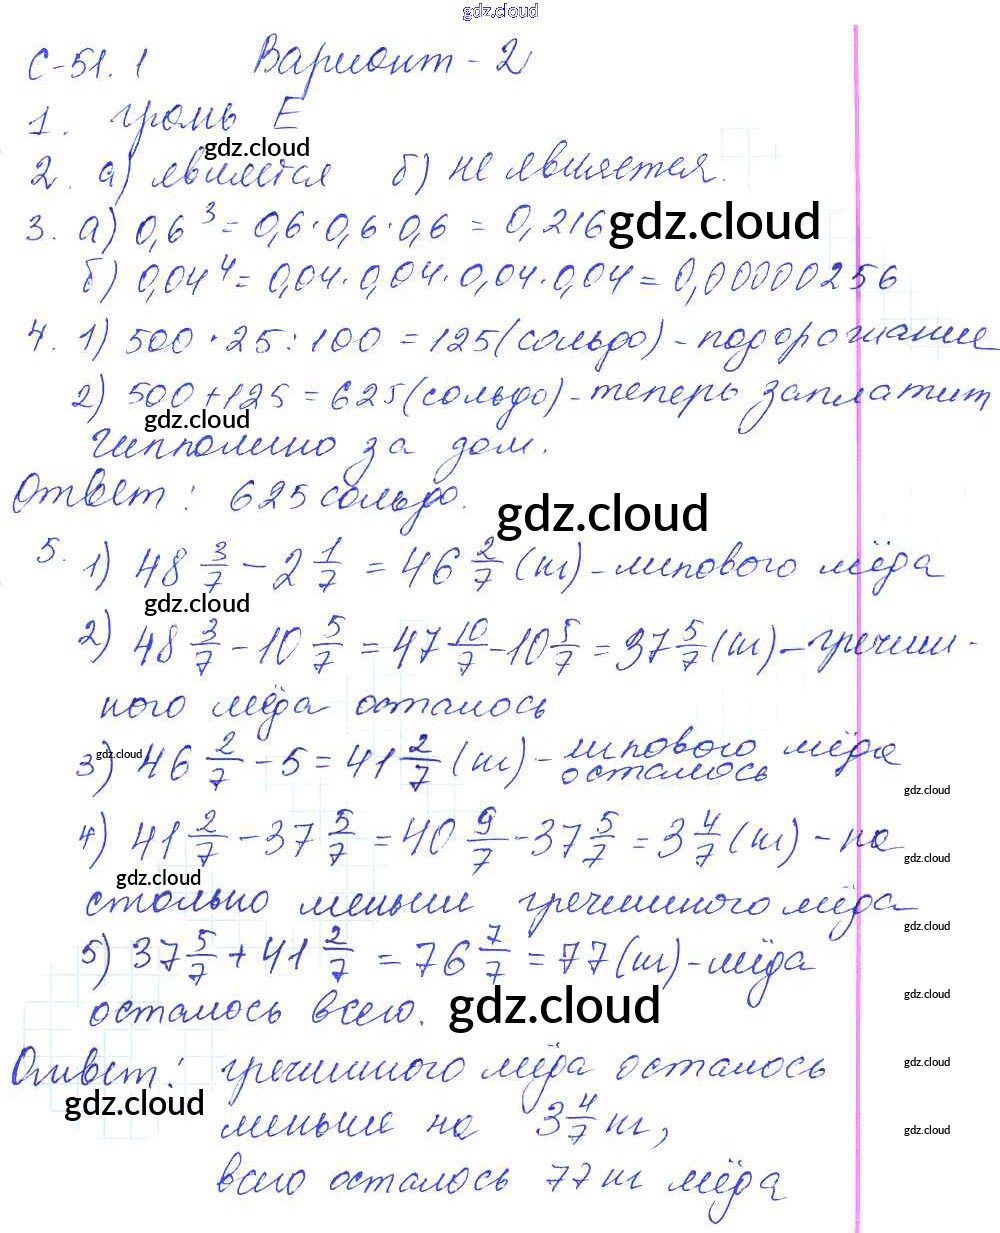 gdz.cloud
С-51.1 Вариант - 2
1. грань Е
gdz.cloud
2. а) является б) не является.
3. а) 0,6³ = 0,6·0,6·0,6 = 0,216 gdz.cloud
б) 0,04⁴ = 0,04·0,04·0,04·0,04 = 0,00000256
4. 1) 500 · 25 : 100 = 125 (сольдо) - подорожание
2) 500 + 125 = 625 (сольдо) - теперь заплатит
gdz.cloud
Чипполино за дом.
Ответ: 625 сольдо.
gdz.cloud
5. 1) 48 3/7 - 2 1/7 = 46 2/7 (кг) - липового мёда
gdz.cloud
2) 48 3/7 - 10 5/7 = 47 10/7 - 10 5/7 = 37 5/7 (кг) - гречиш-
ного мёда осталось
gdz.cloud
3) 46 2/7 - 5 = 41 2/7 (кг) - липового мёда
осталось
gdz.cloud
4) 41 2/7 - 37 5/7 = 40 9/7 - 37 5/7 = 3 4/7 (кг) - на
gdz.cloud
gdz.cloud
столько меньше гречишного мёда
gdz.cloud
5) 37 5/7 + 41 2/7 = 76 7/7 = 77 (кг) - мёда
gdz.cloud
осталось всего. gdz.cloud
Ответ: гречишного мёда осталось
gdz.cloud
gdz.cloud
меньше на 3 4/7 кг,
gdz.cloud
всего осталось 77 кг мёда